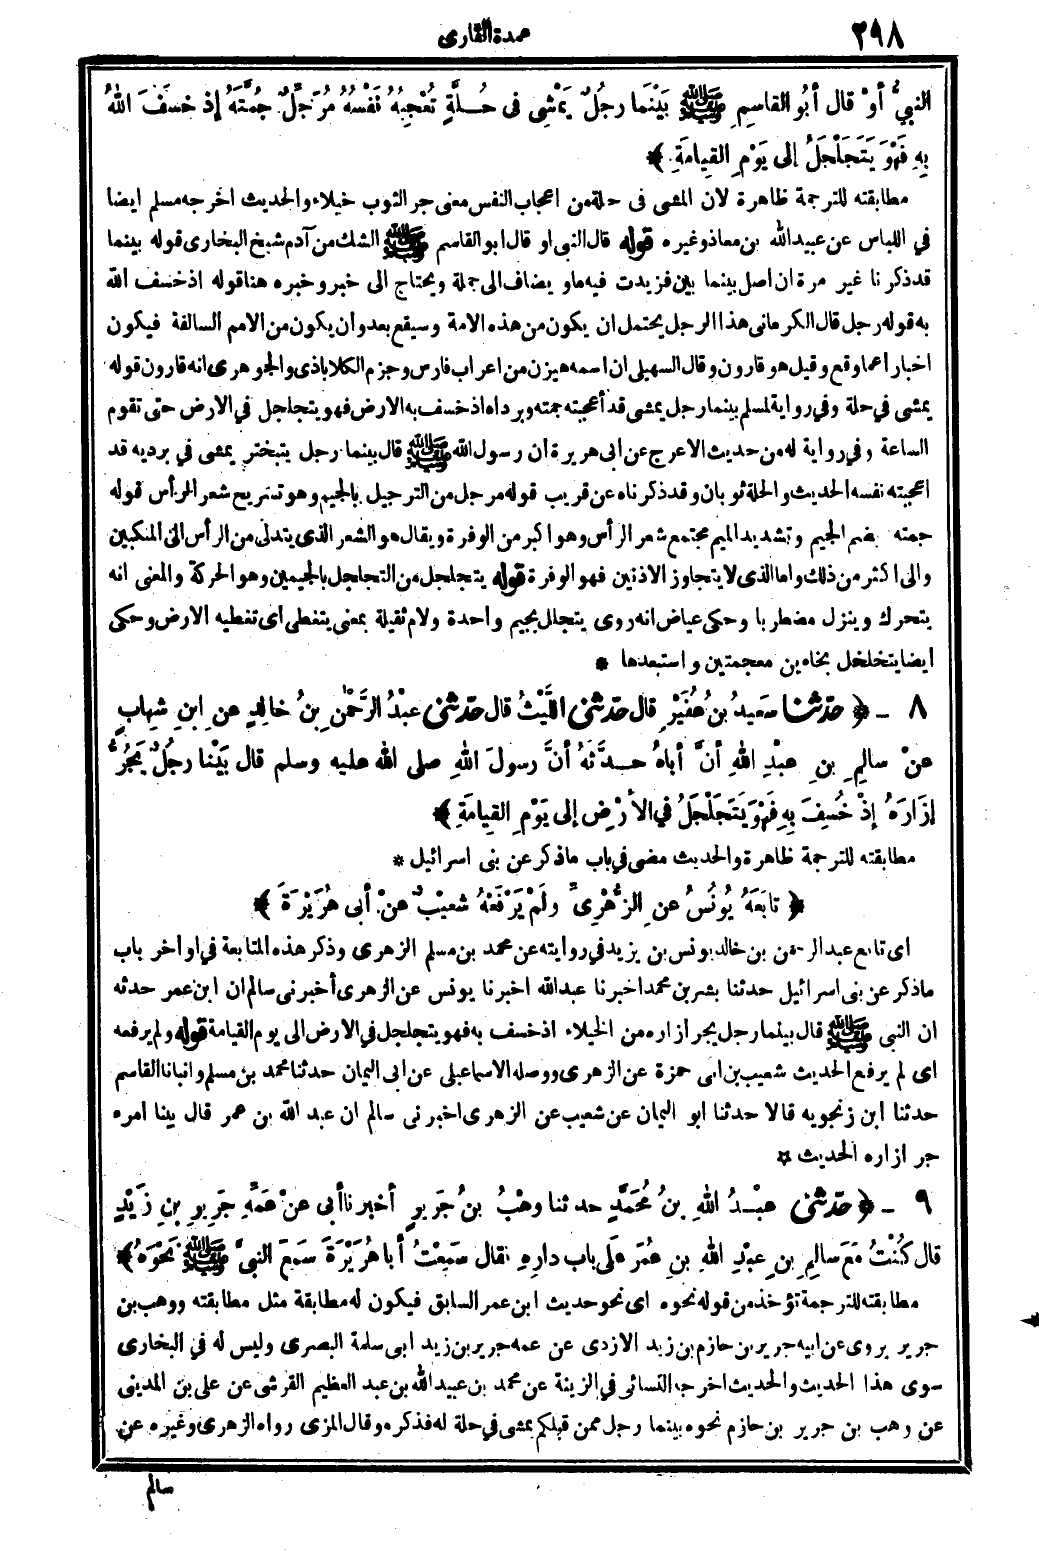 ٢٩٨
عمدة القارى
النبيُّ أوْ قال أبُو القاسِمِ ﷺ بَيْنَما رجُلٌ يَمْشِى فى حُــلَّةٍ تُعْجِبُهُ نَفْسُهُ مُرَجِّلٌ جُمَّتَهُ إذ خَسَفَ اللهُ
بِهِ فَهْوَ يَتَجَلْجَلُ إلى يَوْمِ القِيامَةِ ﴾
مطابقته للترجمة ظاهرة لان المشى فى حلة من اعجاب النفس معنى جر الثوب خيلاء والحديث اخرجه مسلم ايضا
في اللباس عن عبيد الله بن معاذ وغيره قوله قال النبى او قال ابو القاسم ﷺ الشك من آدم شيخ البخارى قوله بينما
قد ذكرنا غير مرة ان اصل بينما بين فزيدت فيه ما و يضاف الى جملة ويحتاج الى خبر وخبره هنا قوله اذ خسف الله
به قوله رجل قال الكرمانى هذا الرجل يحتمل ان يكون من هذه الامة وسيقع بعد وان يكون من الامم السالفة فيكون
اخبارا عما وقع وقيل هو قارون وقال السهيلى ان اسمه هيزن من اعراب فارس وجزم الكلاباذى والجوهرى انه قارون قوله
يمشى في حلة وفي رواية لمسلم بينما رجل يمشى قد أعجبته جمته وبرداه اذ خسف به الارض فهو يتجلجل في الارض حتى تقوم
الساعة وفي رواية له من حديث الاعرج عن أبى هريرة أن رسول الله ﷺ قال بينما رجل يتبختر يمشى في برديه قد
اعجبته نفسه الحديث والحلة ثوبان وقد ذكرناه عن قريب قوله مرجل من الترجيل بالجيم وهو تسريح شعر الرأس قوله
جمته بضم الجيم وتشديد الميم مجتمع شعر الرأس وهو اكبر من الوفرة ويقال هو الشعر الذى يتدلى من الرأس الى المنكبين
والى اكثر من ذلك واما الذى لا يتجاوز الاذنين فهو الوفرة قوله يتجلجل من التجلجل بالجيمين وهو الحركة والمعنى انه
يتحرك وينزل مضطربا وحكى عياض انه روى يتجلل بجيم واحدة ولام ثقيلة بمعنى يتغطى اى تغطيه الارض وحكى
ايضا يتخلخل بخاءين معجمتين واستبعدها *
٨ - ﴿ حدّثنا سَعِيدُ بنُ عُفَيْرٍ قال حدّثنى اللَّيْثُ قال حدّثنى عبْدُ الرَّحْمٰنِ بنُ خالِدٍ عنِ ابنِ شِهابٍ
عنْ سالِمِ بنِ عبْدِ اللهِ أنَّ أباهُ حــدَّثَهُ أنَّ رسولَ اللهِ صلى الله عليه وسلم قال بَيْنا رجُلٌ يَجُرُّ
إزَارَهُ إذْ خُسِفَ بِهِ فَهْوَ يَتَجَلْجَلُ في الأرْضِ إلى يَوْمِ القِيامَةِ ﴾
مطابقته للترجمة ظاهرة والحديث مضى في باب ما ذكر عن بنى اسرائيل *
﴿ تابَعَهُ يُونُسُ عنِ الزُّهْرِىِّ ولَمْ يَرْفَعْهُ شعيْبٌ عنْ أبى هُرَيْرَةَ ﴾
اى تابع عبد الرحمن بن خالد يونس بن يزيد في روايته عن محمد بن مسلم الزهرى وذكر هذه المتابعة في اواخر باب
ما ذكر عن بنى اسرائيل حدثنا بشر بن محمد اخبرنا عبد الله اخبرنا يونس عن الزهرى أخبرنى سالم ان ابن عمر حدثه
ان النبى ﷺ قال بينما رجل يجر أزاره من الخيلاء اذ خسف به فهو يتجلجل في الارض الى يوم القيامة قوله ولم يرفعه
اى لم يرفع الحديث شعيب بن ابى حمزة عن الزهرى ووصله الاسماعيلى عن ابى اليمان حدثنا محمد بن مسلم وانبانا القاسم
حدثنا ابن زنجويه قالا حدثنا ابو اليمان عن شعيب عن الزهرى اخبرنى سالم ان عبد الله بن عمر قال بينا امرء
جر ازاره الحديث *
٩ - ﴿ حدّثنى عبْــدُ اللهِ بنُ مُحَمَّدٍ حدثنا وهْبُ بنُ جَريرٍ أخبرنا أبى عنْ عَمِّهِ جَرِيرِ بنِ زَيْدٍ
قال كُنْتُ مَعَ سالِمِ بنِ عبْدِ اللهِ بنِ عُمَرَ علَى باب دارِهِ فقال سَمِعْتُ أبا هُرَيْرَةَ سَمِعَ النبىَّ ﷺ نَحْوَهُ ﴾
مطابقته للترجمة تؤخذ من قوله نحوه اى نحو حديث ابن عمر السابق فيكون له مطابقة مثل مطابقته ووهب بن
جرير يروى عن ابيه جرير بن حازم بن زيد الازدى عن عمه جرير بن زيد ابى سلمة البصرى وليس له في البخارى
سوى هذا الحديث والحديث اخرجه النسائى في الزينة عن محمد بن عبيد الله بن عبد العظيم القرشى عن على بن المدينى
عن وهب بن جرير بن حازم نحوه بينما رجل ممن قبلكم يمشى في حلة له فذكره وقال المزى رواه الزهرى وغيره عن
سالم